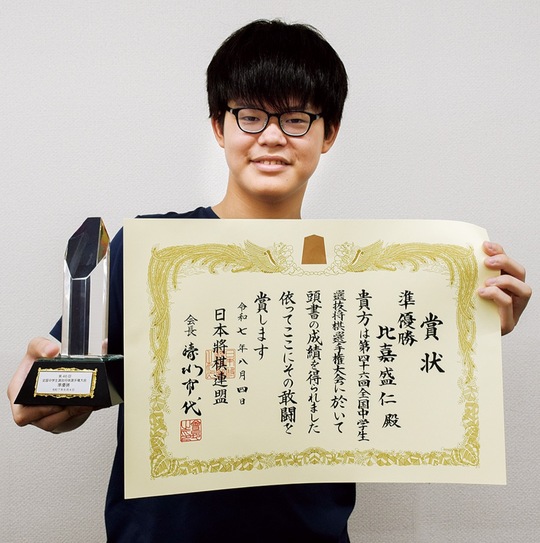 賞状
準優勝
比嘉盛仁殿
貴方は第四十六回全国中学生
選抜将棋選手権大会に於いて
頭書の成績を得られました
依ってここにその敢闘を
賞します
令和七年八月四日
日本将棋連盟
会長 清水市代
第46回
全国中学生選抜将棋選手権大会
準優勝